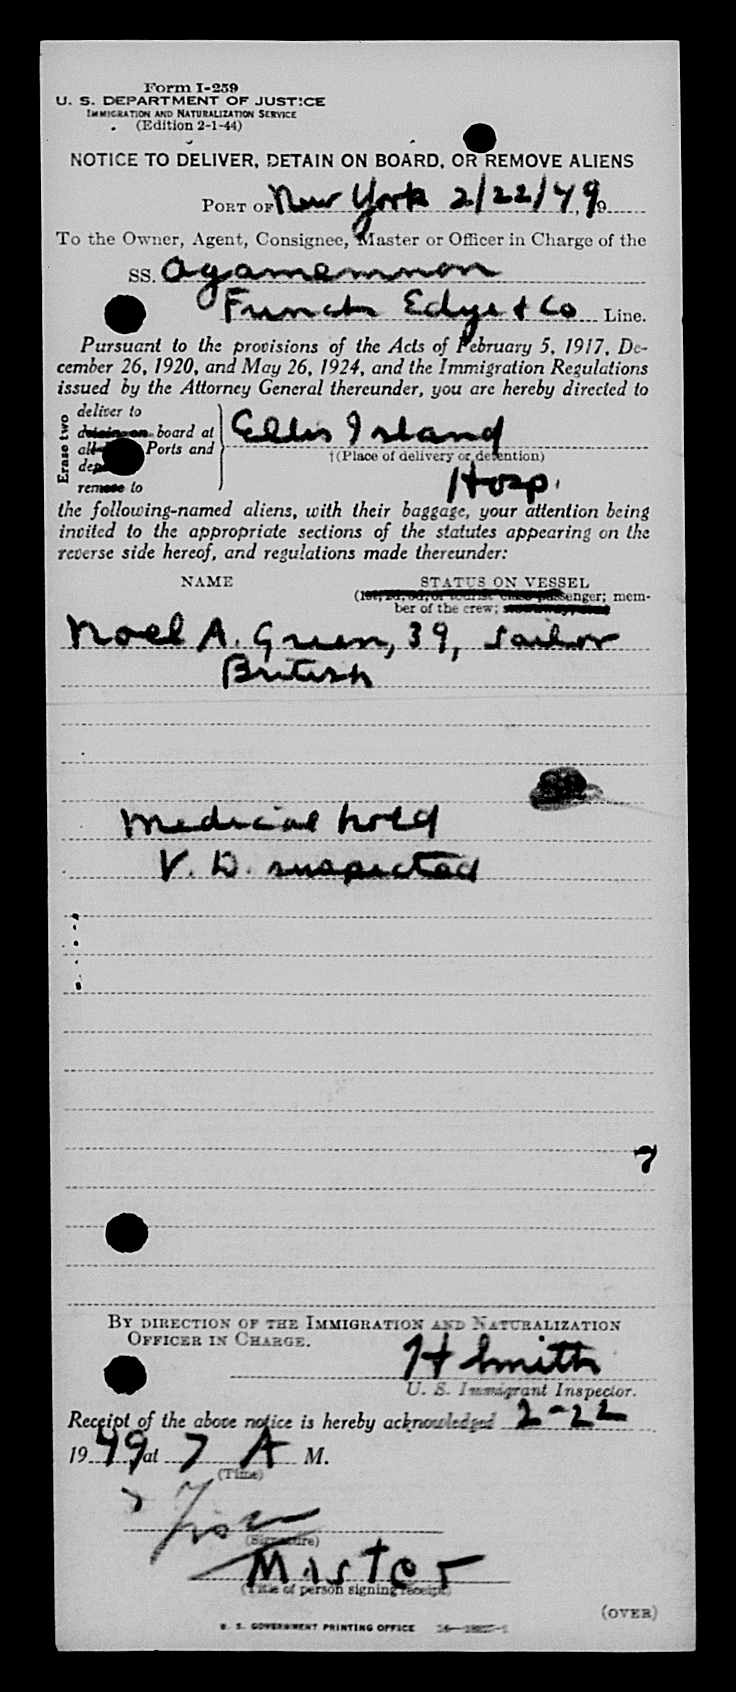 Form I-259
U. S. DEPARTMENT OF JUSTICE
IMMIGRATION AND NATURALIZATION SERVICE
(Edition 2-1-44)
NOTICE TO DELIVER, DETAIN ON BOARD, OR REMOVE ALIENS
PORT OF New York 2/22/49, 19
To the Owner, Agent, Consignee, Master or Officer in Charge of the
SS. Agamemnon
Funch Edye & Co Line.
Pursuant to the provisions of the Acts of February 5, 1917, De-
cember 26, 1920, and May 26, 1924, and the Immigration Regulations
issued by the Attorney General thereunder, you are hereby directed to
Erase two
deliver to
detain on board at
all Ports and
remove to
Ellis Island
†(Place of delivery or detention)
Hosp.
the following-named aliens, with their baggage, your attention being
invited to the appropriate sections of the statutes appearing on the
reverse side hereof, and regulations made thereunder:
NAME STATUS ON VESSEL
(1st, 2d, 3d, or tourist class passenger; mem-
ber of the crew; stowaway, etc.)
Noel A. Green, 39, Sailor
British
Medical hold
V. D. suspected
7
BY DIRECTION OF THE IMMIGRATION AND NATURALIZATION
OFFICER IN CHARGE.
H Smith
U. S. Immigrant Inspector.
Receipt of the above notice is hereby acknowledged 2-22
1949, at 7 A M.
(Time)
(Signature)
Master
(Title of person signing receipt)
(OVER)
U. S. GOVERNMENT PRINTING OFFICE